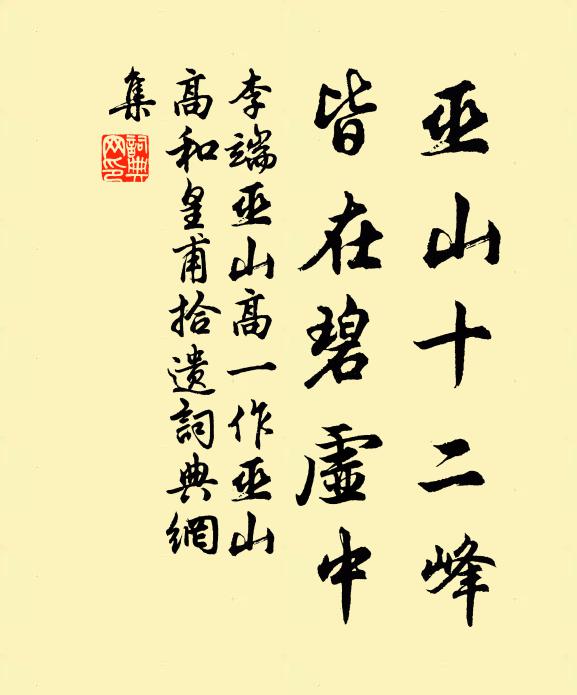 巫山十二峰
皆在碧虛中
李端巫山高一作巫山
高和皇甫拾遺詞典網
集
詞典網印